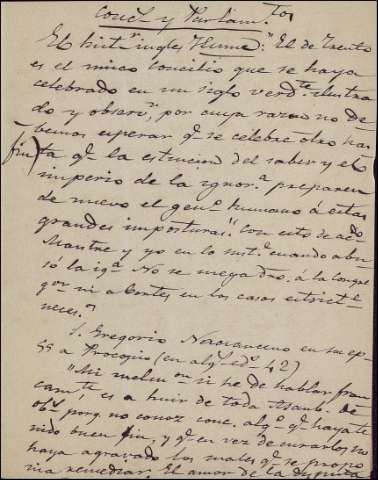 Conc.s y Parlam.tos
El hist.or inglés Hume: "El de Trento
es el único concilio que se haya
celebrado en un siglo verd.te ilustra
do y observ.r, por cuya razon no de
bemos esperar q.e se celebre otro has
fin) ta q.e la estincion del saber y el
imperio de la ignor.a preparen
de nuevo el gen.o humano á estas
grandes imposturas." Con esto de ac.do
Maistre y yo en lo
só la ig.a No se niega dro. á la
ni a Cortes en los casos
S. Gregorio Nacianceno en su ep.
55 a Procopio (en alg.s ed.s 42)
"Mi
cam.te, es a huir de toda Asamb. de
ob.s porq. no conoz conc. alg.o q.e haya te
nido buen fin, y q.e en vez de curarlos no
haya agravado los males q.e se propo
nia remediar. El amor de la disputa